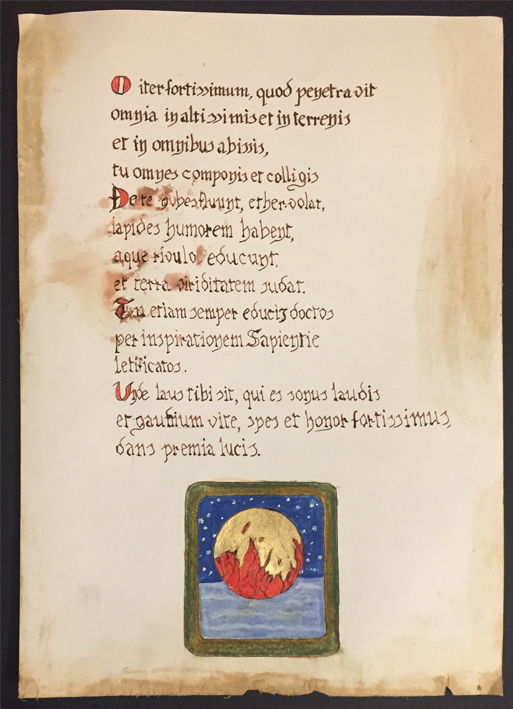 O iter fortissimum, quod penetravit
omnia in altissimis et in terrenis
et in omnibus abissis,
tu omnes componis et colligis
De te nubes fluunt, ether volat,
lapides humorem habent,
aque rivulos educunt,
et terra viriditatem sudat.
Tu etiam semper educis doctos
per inspirationem Sapientie
letificatos.
Unde laus tibi sit, qui es sonus laudis
et gaudium vite, spes et honor fortissimus,
dans premia lucis.